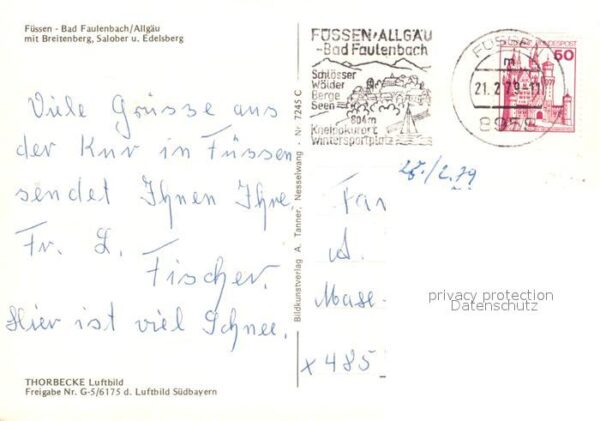 Füssen - Bad Faulenbach/Allgäu
mit Breitenberg, Salober u. Edelsberg
Viele Grüsse aus
der Kur in Füssen
sendet Ihnen Ihre
Fr. L.
Fischer.
Hier ist viel Schnee.
THORBECKE Luftbild
Freigabe Nr. G-5/6175 d. Luftbild Südbayern
Bildkunstverlag A. Tanner, Nesselwang - Nr. 7245 C
FÜSSEN/ALLGÄU
-Bad Faulenbach
Schlösser
Wälder
Berge
Seen
804m
Kneippkurort
Wintersportplatz
FÜSSEN
21.2.79-11
8958
DEUTSCHE BUNDESPOST
50
2.79
Fa
d.
x 485
privacy protection
Datenschutz